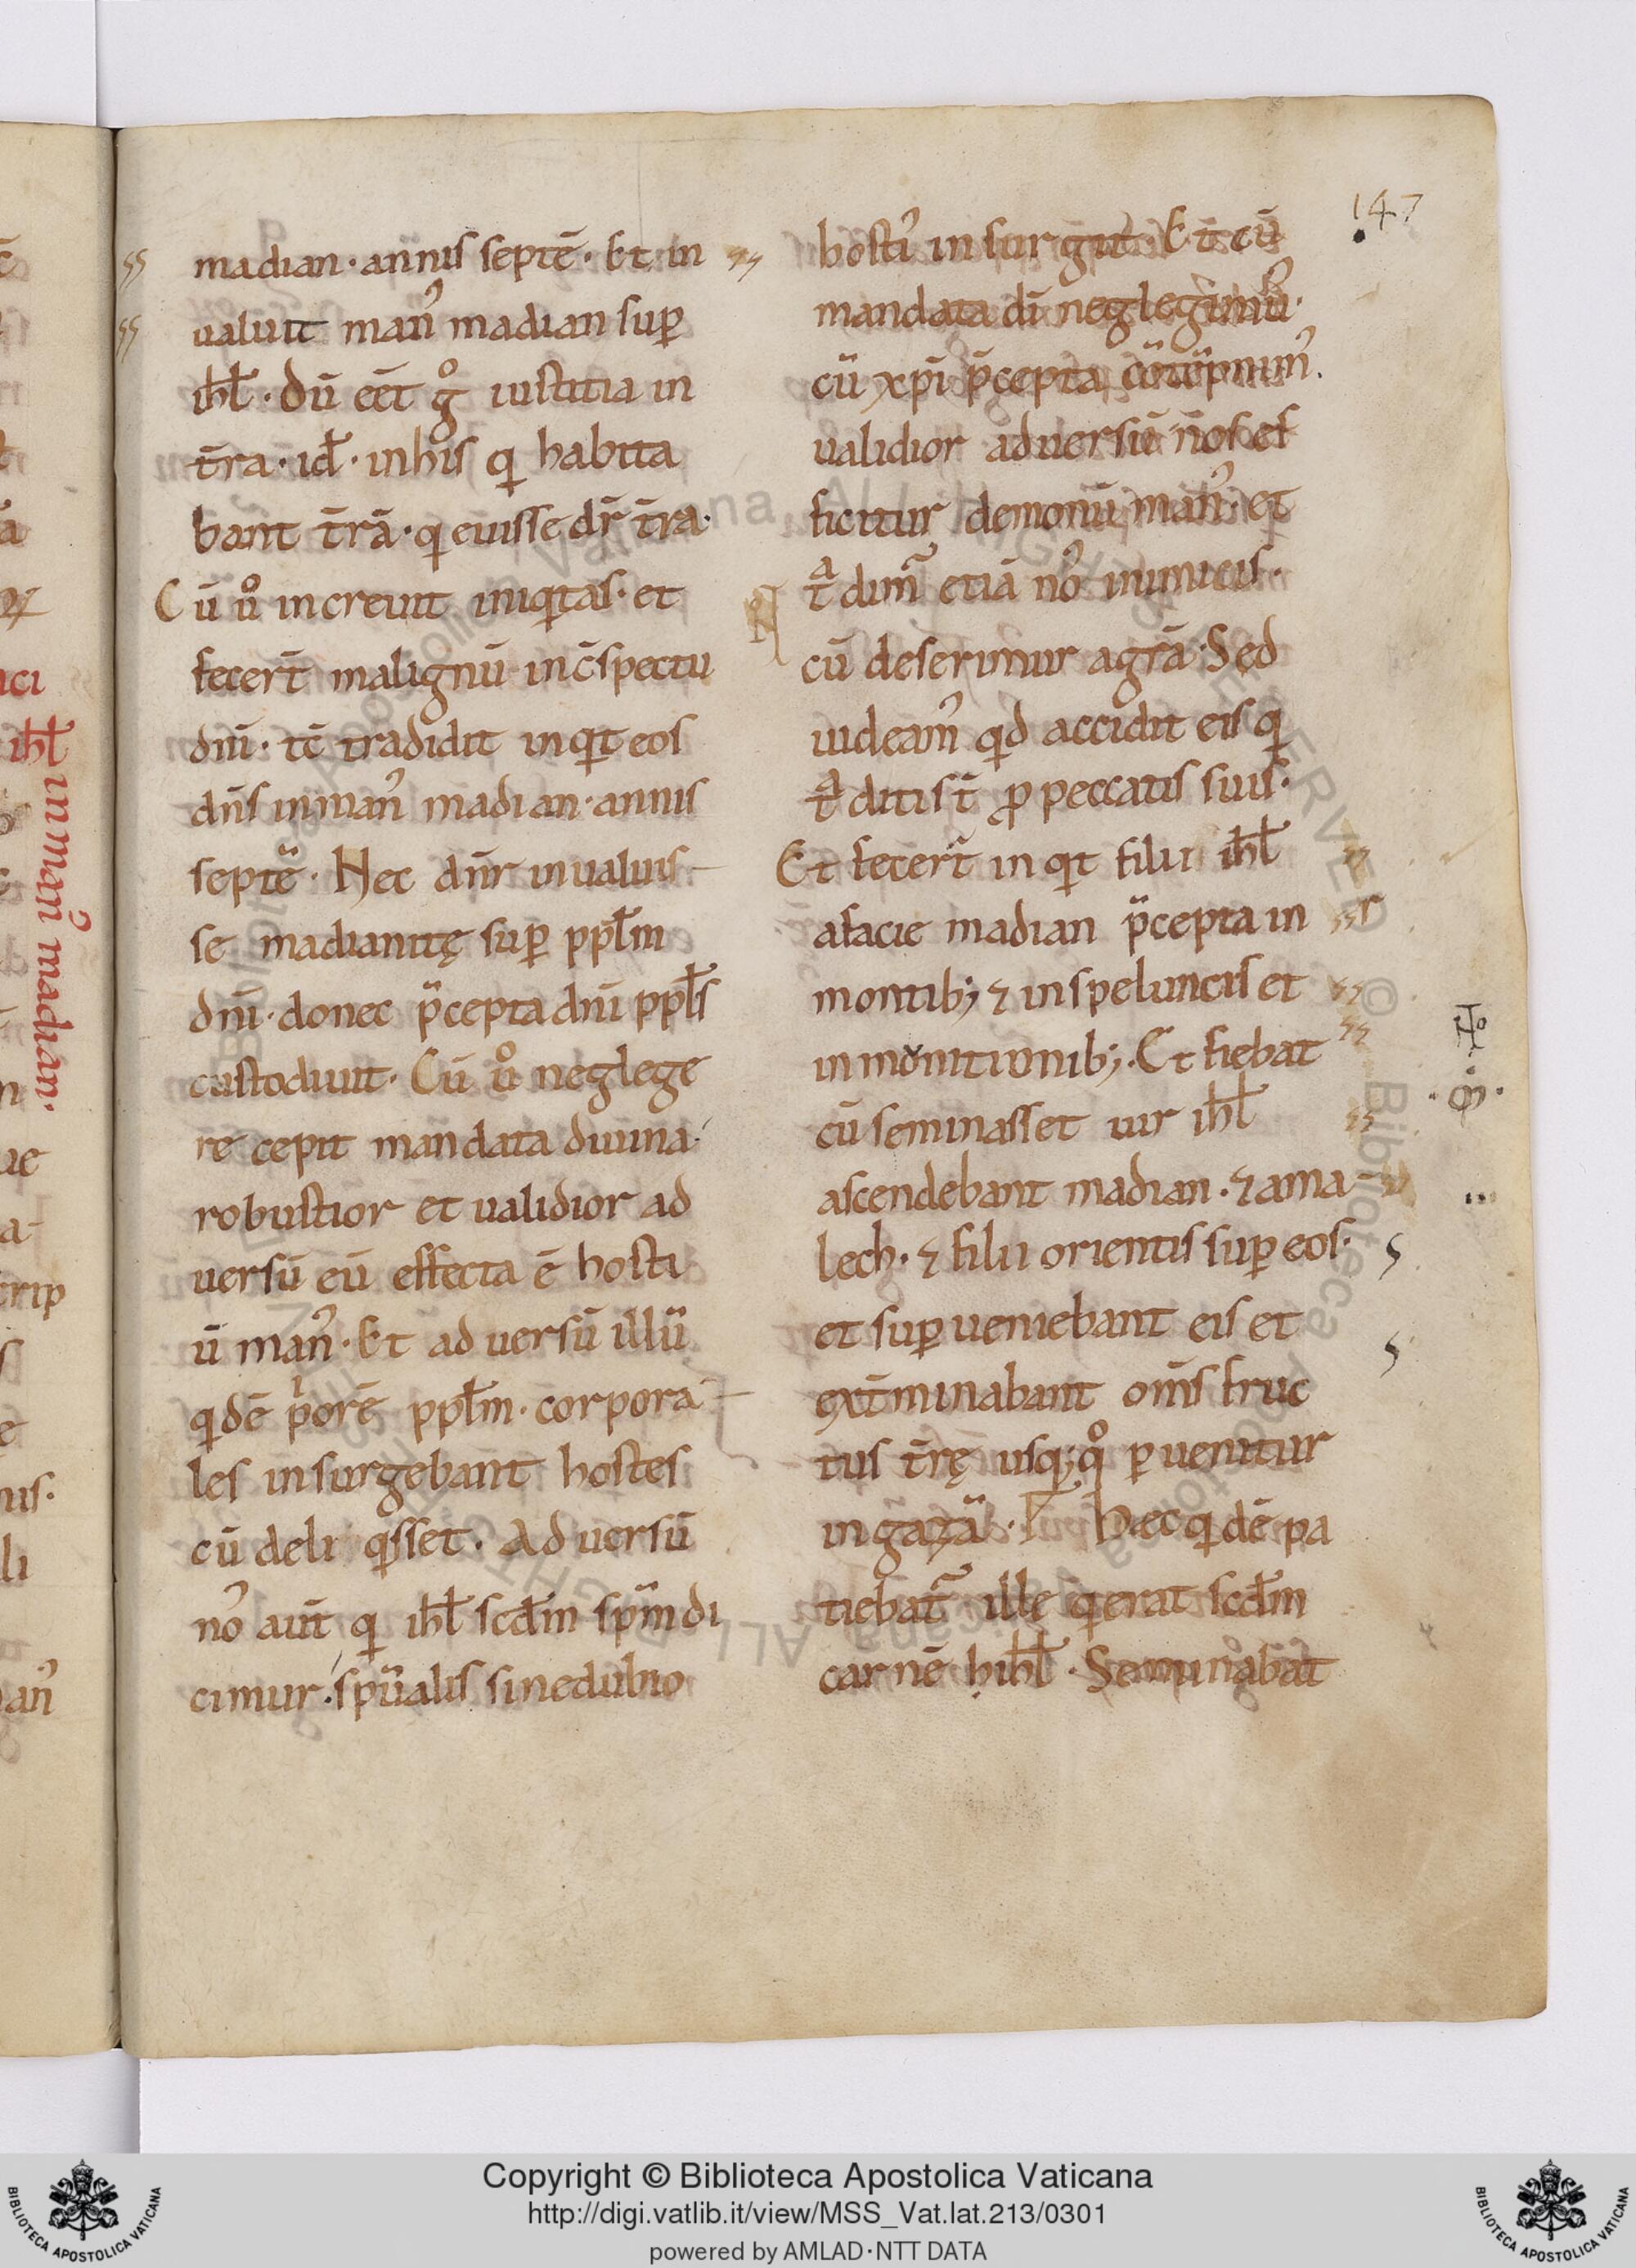 147
madian · annis septē · Et in
ualuit man᾽ madian suꝑ
ihł · dū eēt g̊ iustitia in
t̄ra · id̄ · inhis q habita
bant t̄rā · q euisse dr̄ t̄ra ·
Cū ů increuit iniqtas · et
fecer̄t malignū inc̄spectu
dnī · tc̄ tradidit inqt eos
dn̄s inman᾽ madian · annis
septē · Hec dn̄r inualuis
se madianitę suꝑ ppłm
dnī · donec p̄cepta dnī ppłs
custodiuit · Cū ů neglege
re cepit mandata diuina ·
robustior et ualidior ad
uersū eū effecta ē hosti
ū man᾽ · Et aduersū illū
qdē pͥorē ppłm · corpora
les insurgebant hostes
cū deliqsset · Aduersū
no᾽ aūt q ihł scdm̄ spm̄ di
cimur · spūalis sinedubio
hosti᾽ insurgit · Et cū
mandata dī neglegim᾽
cū xp̄i p̄cepta
ualidior aduersū nos ef
ficitur demonū man᾽ · et
tᵃdim̄ etiā no᾽ inimicis ·
cū deserimur agrā · Sed
uideam᾽ qd accidit eis q
tᵃditi st̄ ꝓ peccatis suis ·
Et fecer̄t inqt filii ihł
afacie madian p̄cepta in
montib; ⁊ inspeluncis et
inmonitionib; · Et fiebat
cū seminasset uir ihł
ascendebant madian · ⁊ ama
lech · ⁊ filii orientis suꝑ eos ·
et suꝑueniebant eis et
ext̄minabant om̄s fruc
tus t̄rę usq; q̊ ꝑuenitur
ingazā · Hec qdē pa
tiebat̄ ille q erat scdm̄
carnē hihł · Seminabat
ihł inman᾽ madian ·
Copyright © Biblioteca Apostolica Vaticana
http://digi.vatlib.it/view/MSS_Vat.lat.213/0301
powered by AMLAD·NTT DATA
BIBLIOTECA APOSTOLICA VATICANA
BIBLIOTECA APOSTOLICA VATICANA